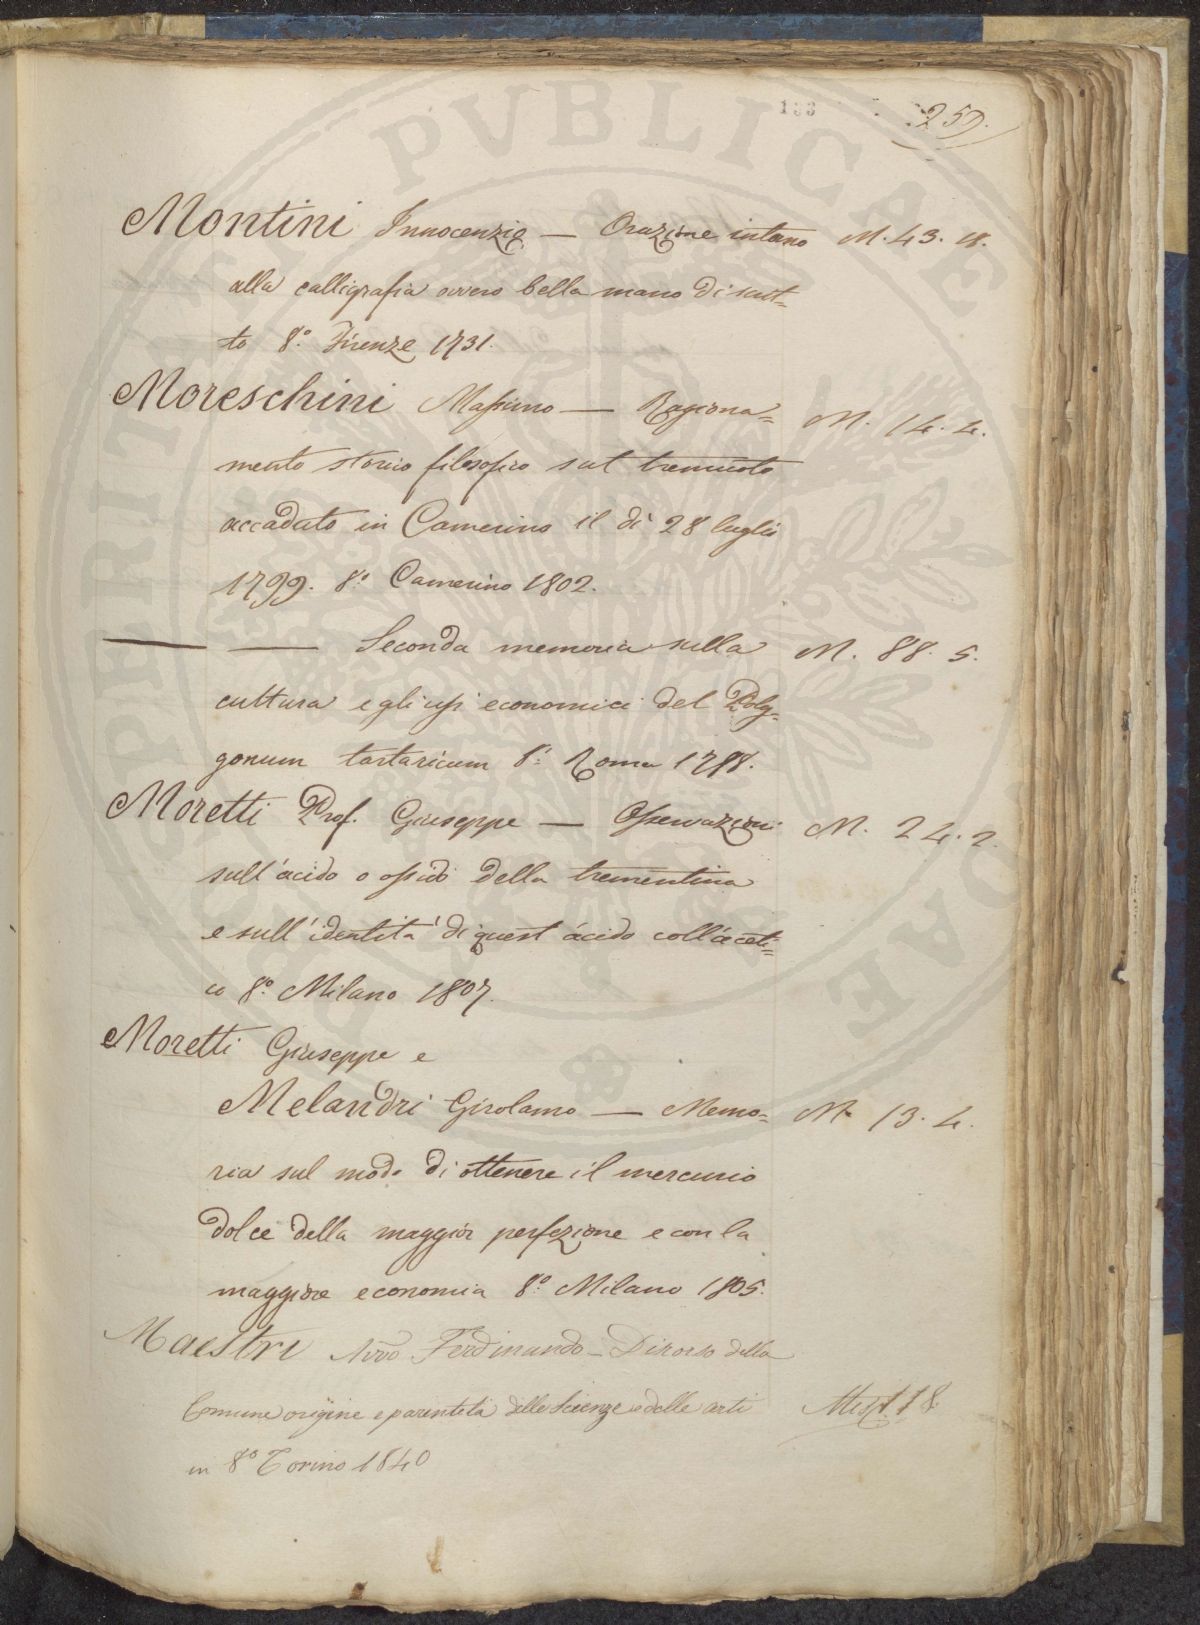 133 259.
Montini Innocenzio — Orazione intorno M. 43. 18.
alla calligrafia ovvero bella mano di scrit=
to 8.° Firenze 1731.
Moreschini Massimo — Ragiona= M. 14. 4.
mento storico filosofico sul tremuoto
accaduto in Camerino il dì 28 luglio
1799. 8.° Camerino 1802.
— — Seconda memoria sulla M. 88. 5.
cultura e gli usi economici del Poly=
gonum tartaricum 8.° Roma 1798.
Moretti Prof. Giuseppe — Osservazioni M. 24. 2.
sull'acido o ossido della trementina
e sull'identità di quest'acido coll'aceti=
co 8.° Milano 1807.
Moretti Giuseppe e
Melandri Girolamo — Memo= M. 13. 4.
ria sul modo di ottenere il mercurio
dolce della maggior perfezione e con la
maggiore economia 8.° Milano 1805.
Maestri Avvo Ferdinando — Discorso della
Comune origine e parentela delle Scienze e delle arti
in 8° Torino 1840
PVBLICAE